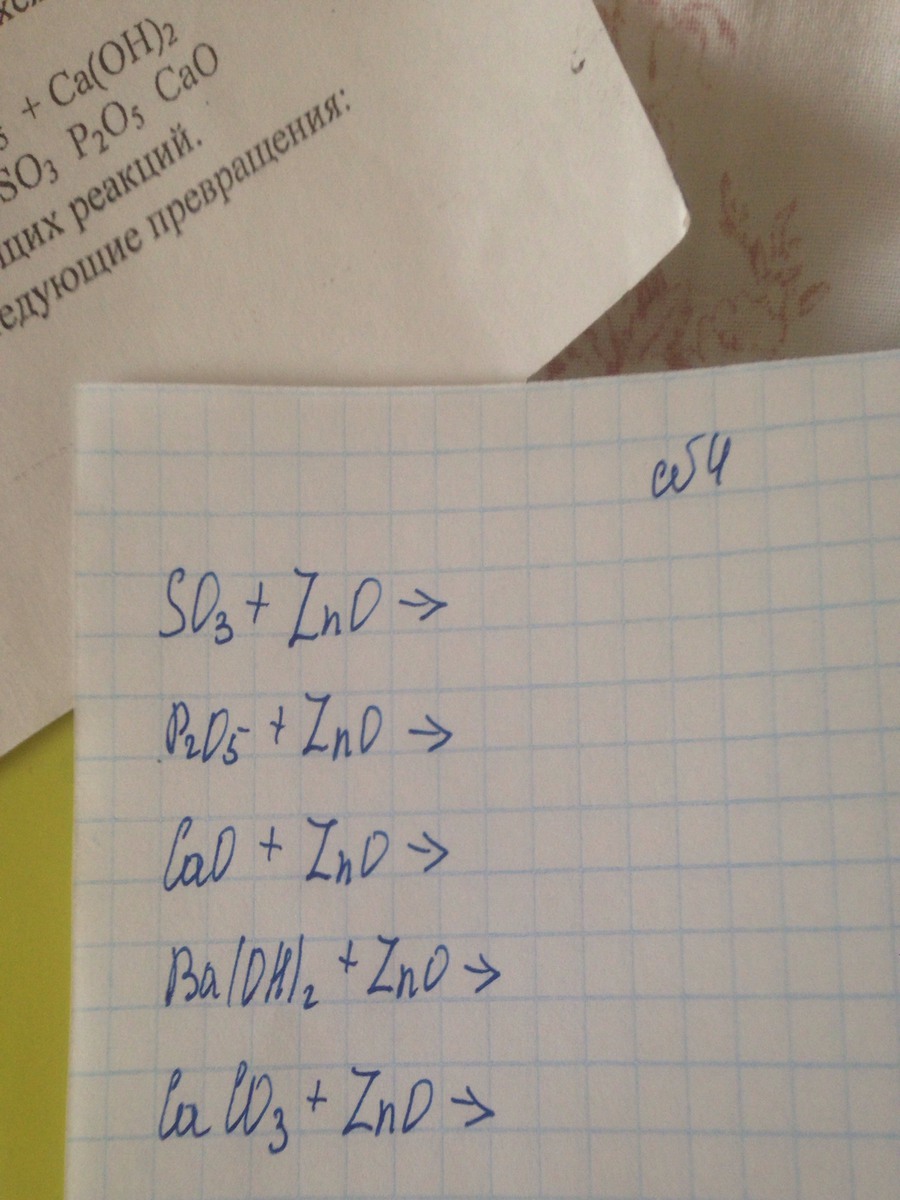 + Ca(OH)₂
SO₃ P₂O₅ CaO
реакций.
превращения:
SO₃ + ZnO →
P₂O₅ + ZnO →
CaO + ZnO →
Ba(OH)₂ + ZnO →
CaCO₃ + ZnO →